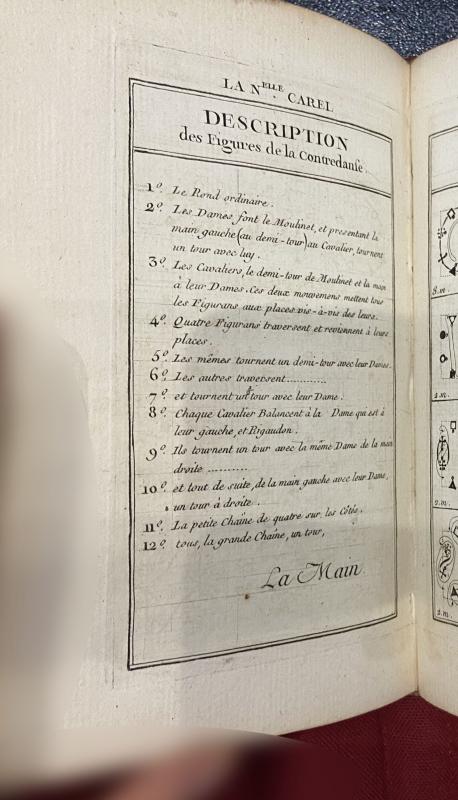 LA N.ELLE CAREL
DESCRIPTION
des Figures de la Contredanse.
1º. Le Rond ordinaire.
2º. Les Dames, font le Moulinet, et presentant la
main gauche (au demi-tour) au Cavalier, tournent
un tour avec luy.
3º. Les Cavaliers, le demi-tour de Moulinet et la main
à leur Dames. Ces deux mouvemens mettent tous
les Figurans aux places vis-à-vis des leurs.
4º. Quatre Figurans traversent et reviennent à leurs
places.
5º. Les mêmes tournent un demi-tour avec leur Dames.
6º. Les autres traversent............
7º. et tournent un tour avec leur Dame.
8º. Chaque Cavalier Balancent à la Dame qui est à
leur gauche, et Rigaudon.
9º. Ils tournent un tour avec la même Dame de la main
droite ..........
10º. et tout de suite, de la main gauche avec leur Dame,
un tour à droite.
11º. La petite Chaîne de quatre sur les Côtés.
12º. tous, la grande Chaîne, un tour,
La Main
8.m.
2.m.
2.m.